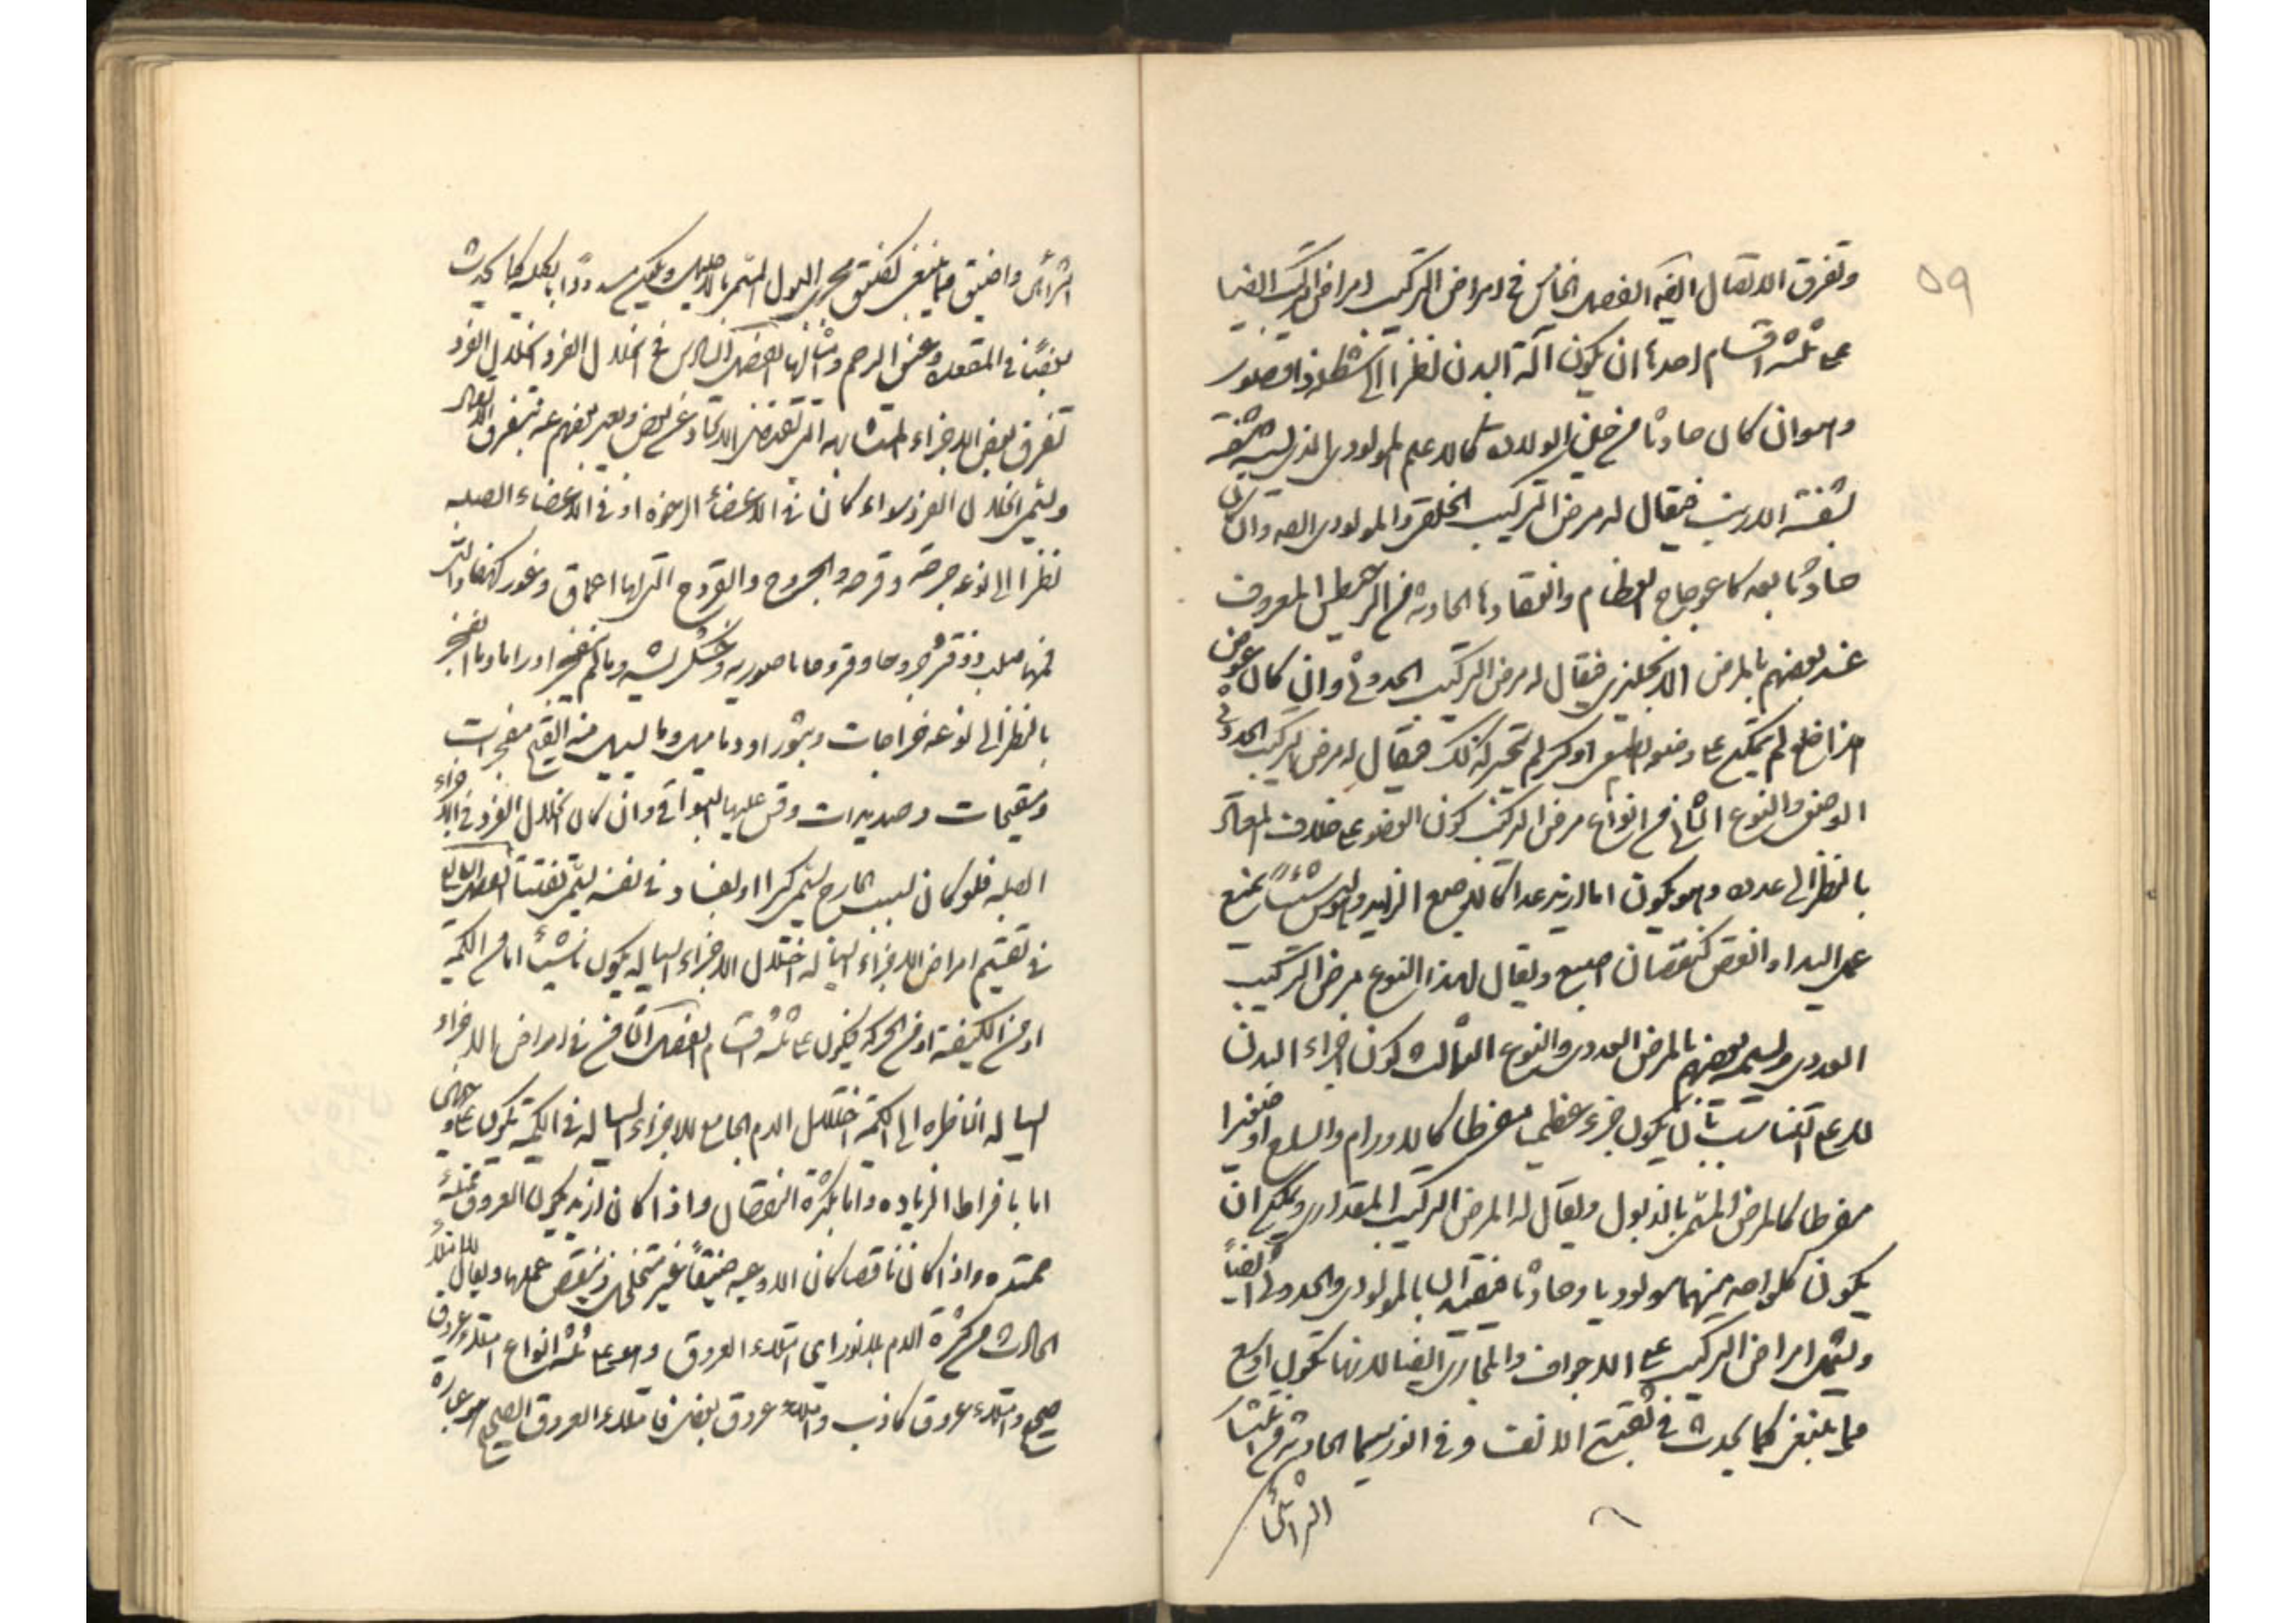 ٥٩
وتفرق الاتصال الفصل الخامس في امراض التركيب امراض التركيب ايضا
على ثلثة اقسام احدها ان يكون آلة البدن نظرا الى شكله
وهو ان كان حادثا من حين الولادة كالاعلم المولودي الذي شفته
بشفة الارنب فيقال له مرض التركيب الخلقي والمولودي وان كان
حادثا بعده كاعوجاج العظام وانعقادها الحادثة من المعروف
عند بعضهم بالمرض الانجليزي فيقال له مرض التركيب الحدوثي وان كان عوض
لم يمكن على وضعه او كسر لم يجبر كذلك فيقال له مرض التركيب
الوضعي والنوع الثاني من انواع مرض التركيب كون العضو على خلاف المعتاد
بالنظر الى عدده وهو يكون اما ازيد عددا كالاصبع الزايد يمنع
عمل اليد او انقص كنقصان اصبع ويقال لهذا النوع مرض التركيب
العددي ويسميه بعضهم بالمرض العددي والنوع الثالث كون اجزاء البدن
لا على التناسب بان يكون جزء عظيما مفرطا كالاورام والسلع او صغيرا
مفرطا كالمرض المسمى بالذبول ويقال له المرض التركيب المقداري ويمكن ان
يكون كل واحد منهما مولوديا وحادثا بالمولودي والحدوثي ايضا
ويشمل امراض التركيب على الاجواف والمجاري ايضا لانها تكون اوسع
مما ينبغي كما يحدث في ثقبتي الانف وفي الانوريسما الحادثة
الشرائين
الشرائين واضيق مما ينبغي كضيق مجرى البول المسمى ويكون مسدودا بالكلية كما يحدث
في المقعدة وعنق الرحم الفصل السادس في انحلال الفرد انحلال الفرد
تفرق بعض الاجزاء المتشابهة ويعبر بعضهم عنه بتفرق الاتصال
ويسمى انحلال الفرد سواء كان في الاعضاء الرخوة او في الاعضاء الصلبة
نظرا الى نوعه جرحة وقرحة والجروح والقروح التي لها اعماق وغور
جروحا وقروحا ناصورية اوراما وما انفجر
بالنظر الى نوعه خراجات وبثورا ودماميل وما يسيل منه القيح مفجرات
ومتقيحات وصديدات وقس عليها البواقي وان كان انحلال الفرد في الاجزاء
الصلبة فلو كان بسبب الخارج يسمى كسرا او بفساد في نفسه يسمى تفتتا الفصل السابع
في تقسيم امراض الاجزاء السيالة اختلال الاجزاء السيالة يكون ناشئا اما من الكمية
او من الكيفية او من الحركة فيكون على ثلثة اقسام الفصل الثامن في امراض الاجزاء
السيالة الناظرة الى الكمية اختلال الدم الجامع للاجزاء السيالة في الكمية يكون على وجهين
اما بافراط الزيادة واما بكثرة النقصان واذا كان ازيد يكون العروق ممتلئة
ممتدة واذا كان ناقصا كان الاوعية ضيقا غير وينقص عملها ويقال للامتلاء
الحادث من كثرة الدم بلانوراي امتلاء العروق وهو على ثلثة انواع امتلاء عروق
صحيح وامتلاء عروق كاذب وامتلاء عروق بعض فامتلاء العروق الصحيح هو عبارة